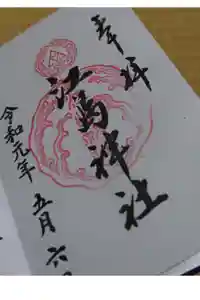 奉拝
江島神社
令和元年
五月六